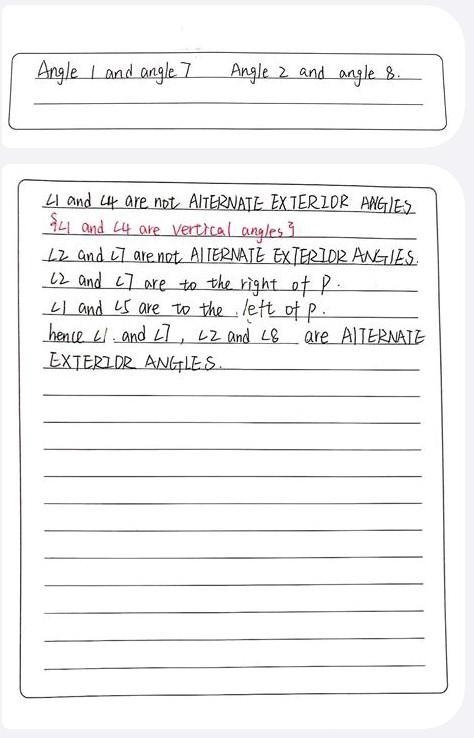 Angle 1 and angle 7 Angle 2 and angle 8.
∠1 and ∠4 are not AlTERNATE EXTERIOR ANGLES
{∠1 and ∠4 are vertical angles}
∠2 and ∠7 are not AlTERNATE EXTERIOR ANGLES.
∠2 and ∠7 are to the right of P.
∠1 and ∠5 are to the left of p.
hence ∠1. and ∠7, ∠2 and ∠8 are AlTERNATE
EXTERIOR ANGLES.